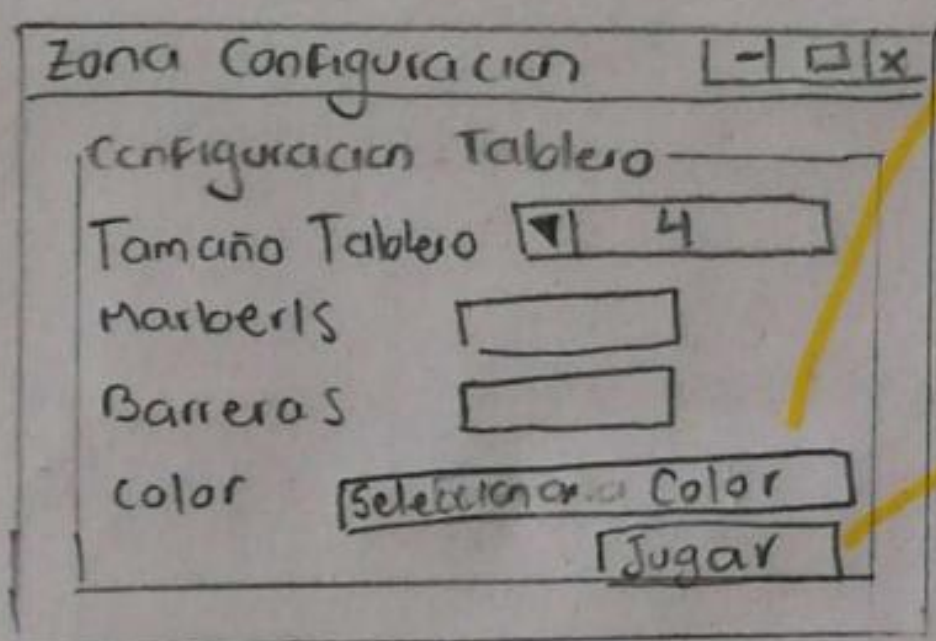 Zona Configuracion
Configuracion Tablero
Tamaño Tablero 4
Marberls
Barreras
Color Seleccionar Color
Jugar